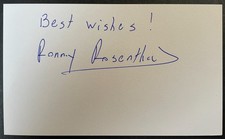 Best wishes!
Ronny Rosenthal